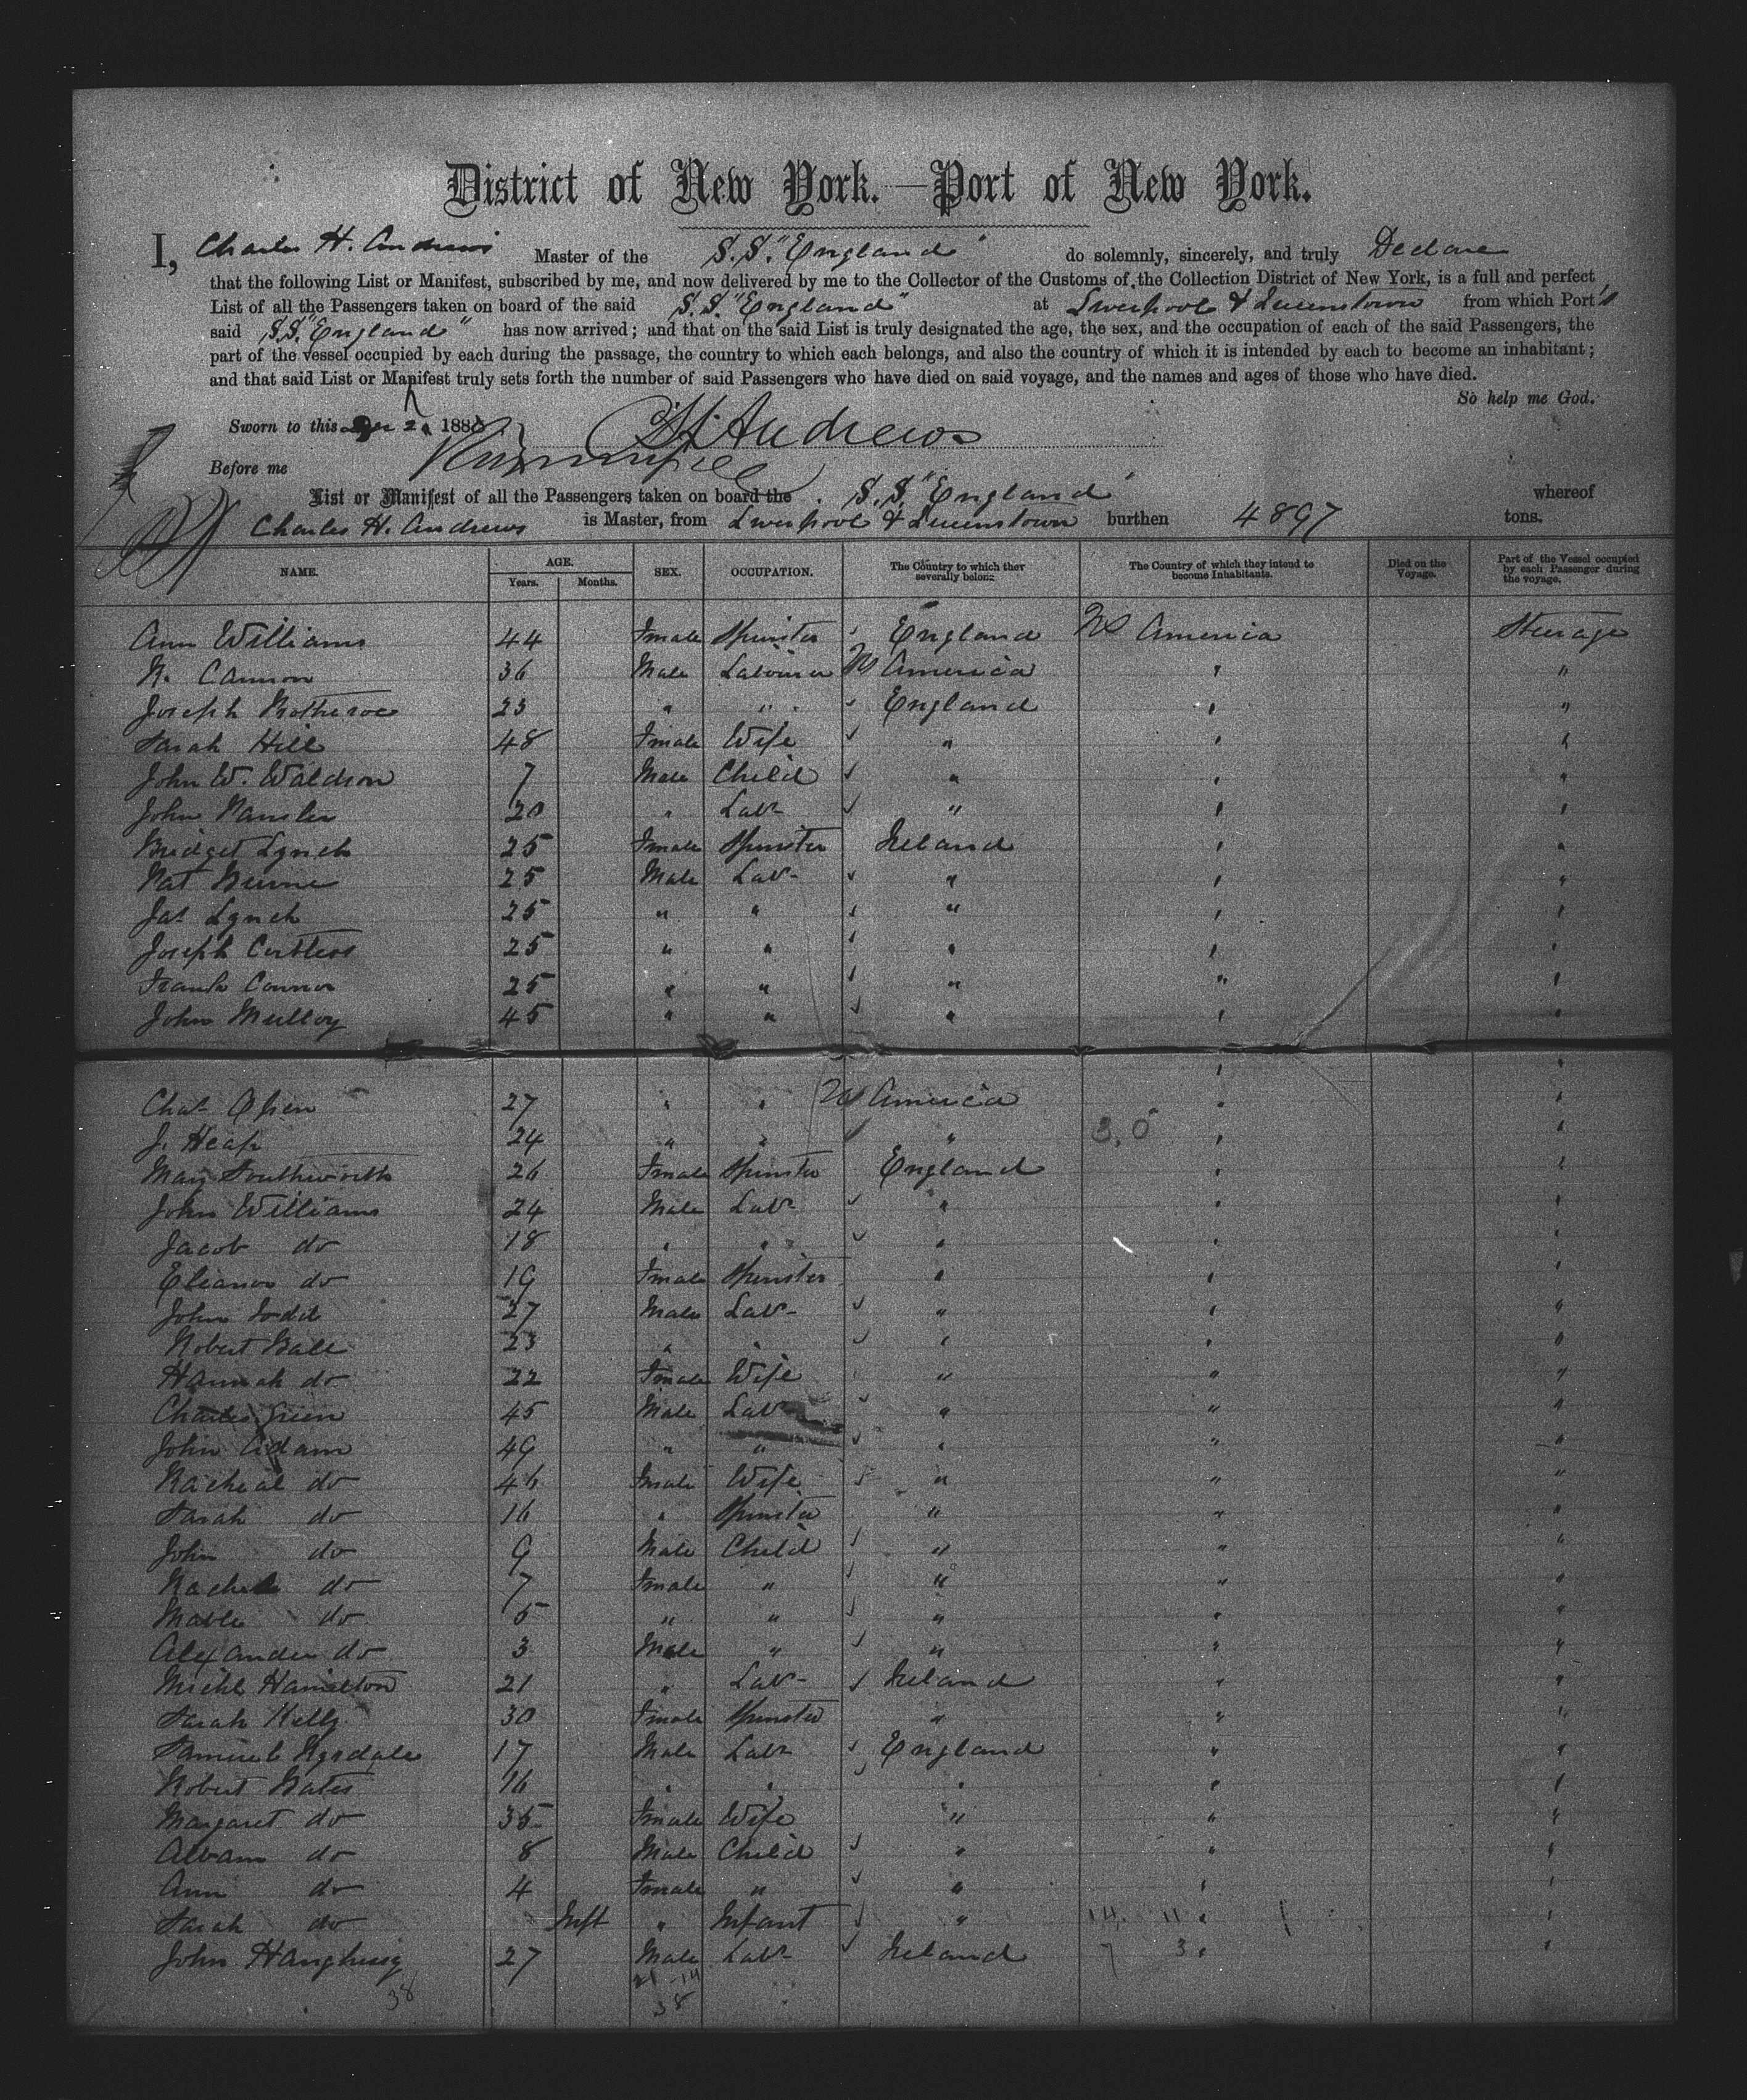 District of New York.—Port of New York.
I, Charles H. Andrews Master of the S.S. "England" do solemnly, sincerely, and truly Declare
that the following List or Manifest, subscribed by me, and now delivered by me to the Collector of the Customs of the Collection District of New York, is a full and perfect
List of all the Passengers taken on board of the said S.S. "England" at Liverpool & Queenstown from which Port's
said S.S. "England" has now arrived; and that on the said List is truly designated the age, the sex, and the occupation of each of the said Passengers, the
part of the vessel occupied by each during the passage, the country to which each belongs, and also the country of which it is intended by each to become an inhabitant;
and that said List or Manifest truly sets forth the number of said Passengers who have died on said voyage, and the names and ages of those who have died.
So help me God.
Sworn to this 188 C H Andrews
Before me
List or Manifest of all the Passengers taken on board the S.S. "England" whereof
Charles H. Andrews is Master, from Liverpool & Queenstown burthen 4897 tons.
NAME. AGE. Years. Months. SEX. OCCUPATION. The Country to which they severally belong. The Country of which they intend to become Inhabitants. Died on the Voyage. Part of the Vessel occupied by each Passenger during the voyage.
Ann Williams 44 Fmale Spinster England US America Steerage
N. Cannon 36 Male Labourer US America " "
Joseph Protheroe 23 " " England " "
Sarah Hill 48 Fmale Wife " " "
John W. Waldron 7 Male Child " " "
John 20 " Labr " " "
Bridget Lynch 25 Fmale Spinster Ireland " "
Pat Burne 25 Male Labr " " "
Jas Lynch 25 " " " " "
Joseph 25 " " " " "
Frank Connor 25 " " " " "
John Mulloy 45 " " " " "
" "
Chas 27 " " US America " "
J. Heap 24 " " " " "
Mary Southworth 26 Fmale Spinster England " "
John Williams 24 Male Labr " " "
Jacob do 18 " " " " "
Elianor do 19 Fmale Spinster " " "
John Todd 27 Male Labr " " "
Robert Ball 23 " " " " "
Hannah do 22 Fmale Wife " " "
Charles Green 45 Male Labr " " "
John Adam 49 " " " " "
Racheal do 46 Fmale Wife " " "
Sarah do 16 " Spinster " " "
John do 9 Male Child " " "
Rachel do 7 Fmale " " " "
Mable do 5 " " " " "
Alexander do 3 Male " " " "
Michl Hamilton 21 " Labr Ireland " "
Sarah Kelly 30 Fmale Spinster " " "
Samuel 17 Male Labr England " "
Robert Bates 16 " " " " "
Margaret do 35 Fmale Wife " " "
Alban do 8 Male Child " " "
Ann do 4 Fmale " " " "
Sarah do Inft " Infant " 14 11 " "
John 27 Male Labr Ireland 7 3 " "
38 21 14
38